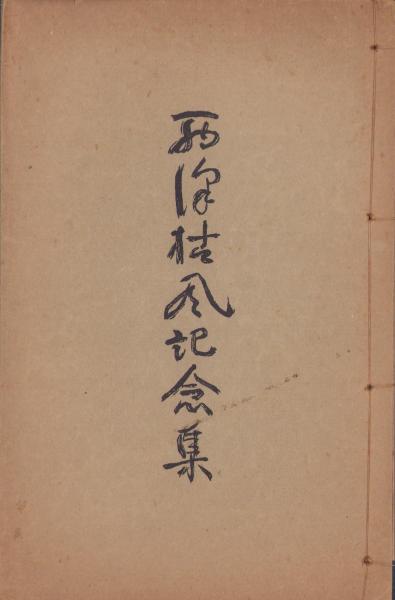 西澤枯風記念集